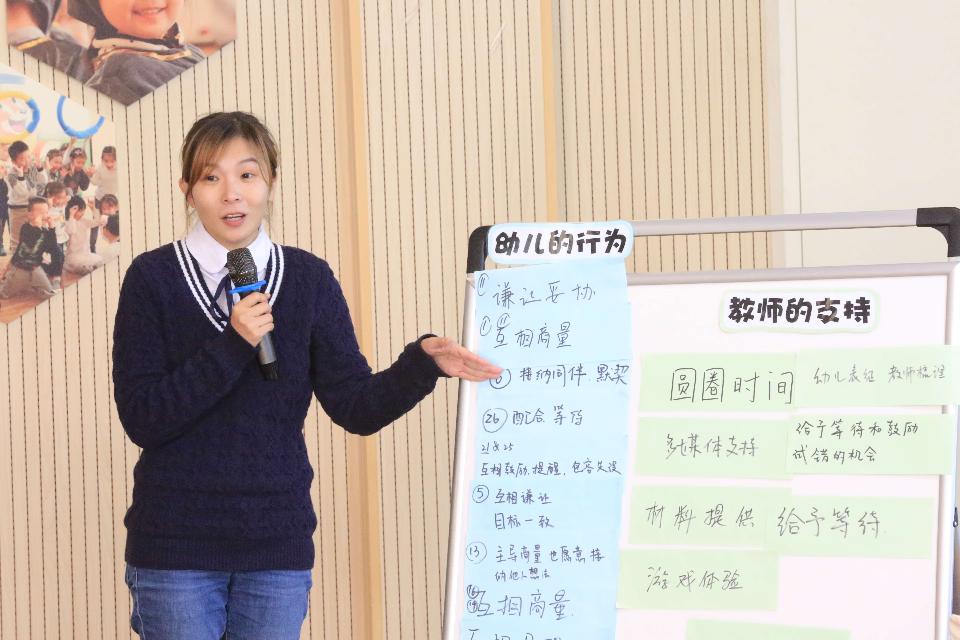 幼儿的行为
⑪ 谦让妥协
① ⑪ 互相商量
⑥ 接纳同伴.默契
㉖ 配合.等待
21&25
互相鼓励.提醒,包容失误
⑤ 互相谦让
目标一致
⑬ 主导商量也愿意接
纳他人想法
互相商量.
教师的支持
圆圈时间
幼儿表征 教师梳理
多媒体支持
给予等待和鼓励
试错的机会
材料提供
给予等待.
游戏体验